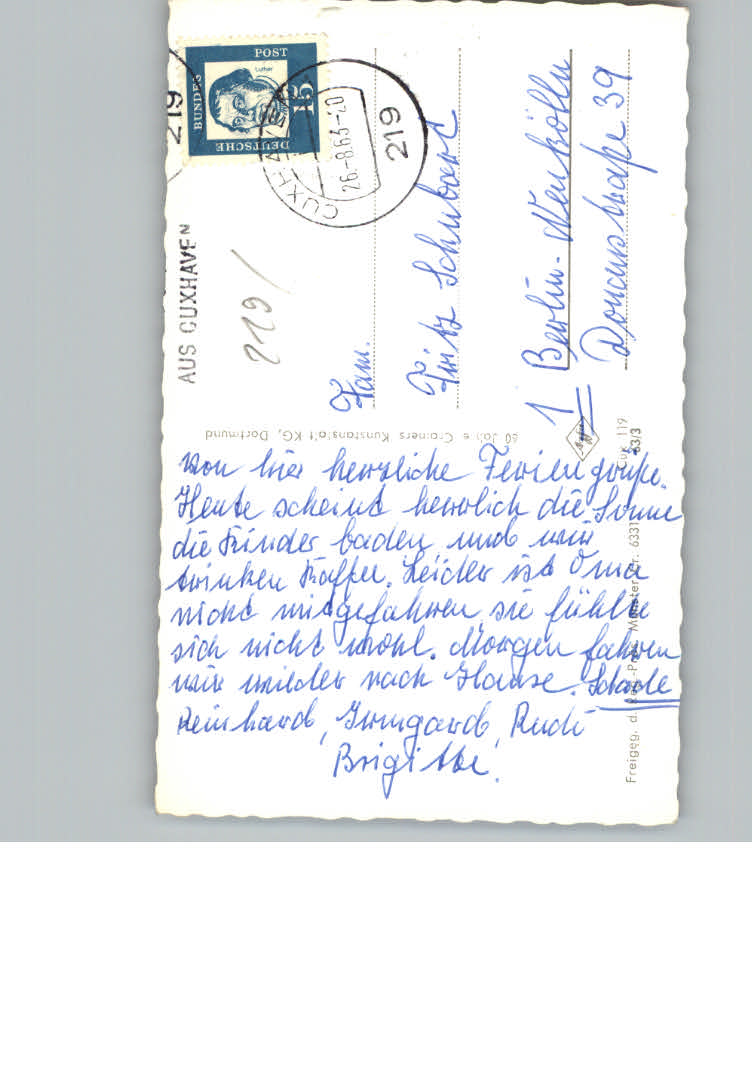 Von hier herzliche Feriengrüße.
Heute scheint herrlich die Sonne
die Kinder baden, und wir
trinken Kaffee. Leider ist Oma
nicht mitgefahren, sie fühlte
sich nicht wohl. Morgen fahren
wir wieder nach Hause. Schade
Reinhard, Irmgard, Rudi
Brigitte.
Fam.
Fritz Schubart
1 Berlin-Neukölln
Donaustraße 39
219/
AUS CUXHAVEN
DEUTSCHE BUNDESPOST
Luther
15
219
CUXHAVEN
26.-8.63-20
219
60 Jahre Cramers Kunstanstalt KG, Dortmund
Cux 119
63/3
Freigeg. d. Reg.-Präs. Münster Nr. 6331